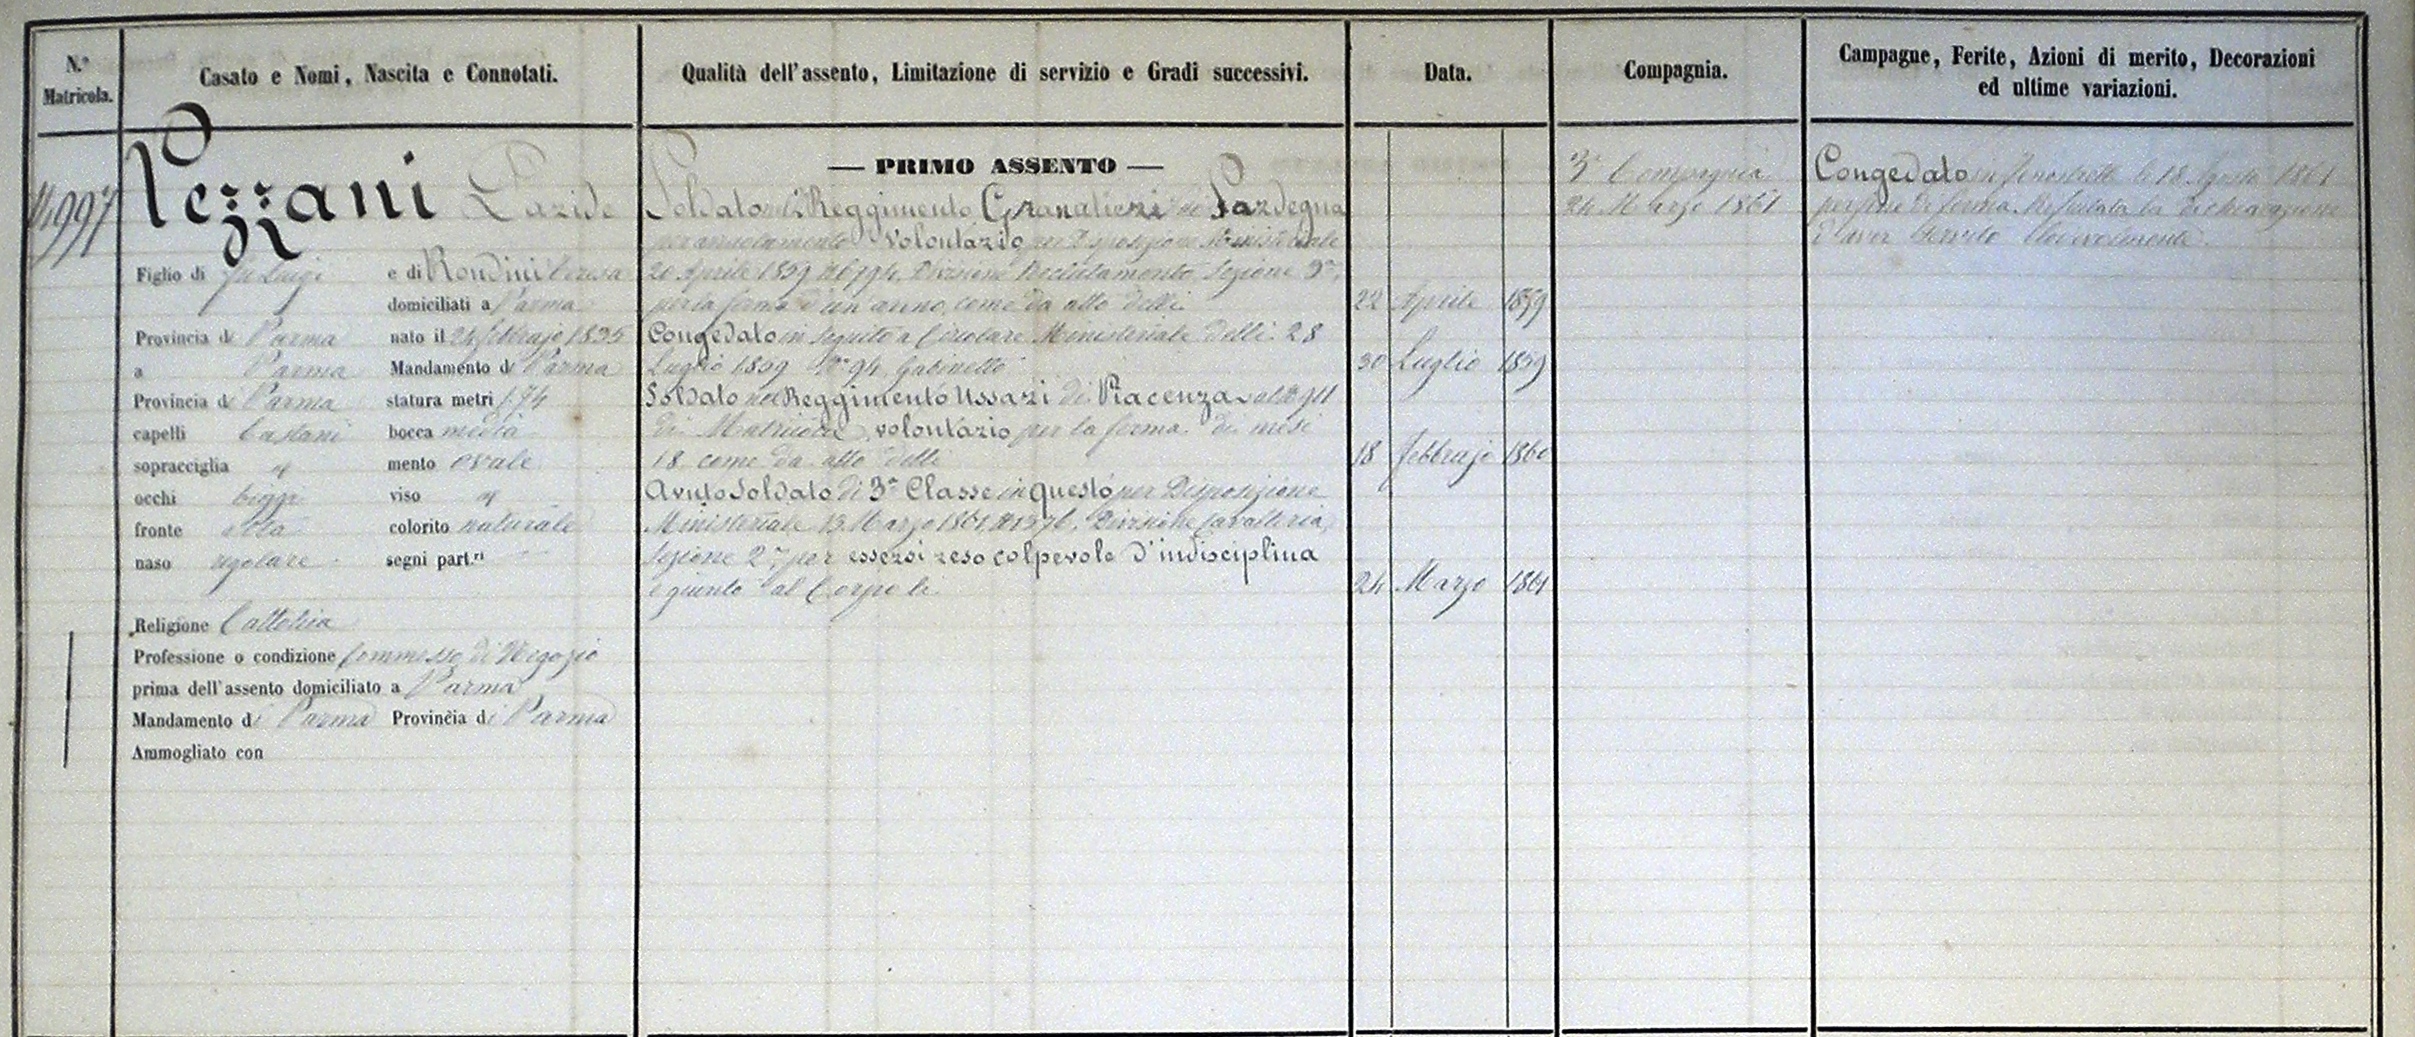 N.º Matricola.
Casato e Nomi, Nascita e Connotati.
Qualità dell'assento, Limitazione di servizio e Gradi successivi.
Data.
Compagnia.
Campagne, Ferite, Azioni di merito, Decorazioni
ed ultime variazioni.
Pezzani
Figlio di fu Luigi e di Rondini Teresa
domiciliati a Parma
Provincia di Parma nato il 24 febbrajo 1835
a Parma Mandamento di Parma
Provincia di Parma statura metri 1.74
capelli Castani bocca media
sopracciglia mento ovale
occhi viso
fronte alta colorito naturale
naso regolare segni part.ri
Religione Cattolica
Professione o condizione Commesso di Negozio
prima dell'assento domiciliato a Parma
Mandamento di Parma Provincia di Parma
Ammogliato con
— PRIMO ASSENTO —
Soldato nel Reggimento Granatieri di Sardegna
per arruolamento volontario per Disposizione Ministeriale
20 Aprile 1859 Divisione Reclutamento, Sezione
per la ferma d'un anno, come da atto delli 22 Aprile 1859
Congedato in seguito a Circolare Ministeriale delli 28
Luglio 1859 N° 94 Gabinetto 30 Luglio 1859
Soldato nel Reggimento Ussari di Piacenza al N° 911
di Matricola, volontario per la ferma di mesi
18 come da atto delli 18 febbrajo 1860
Avuto Soldato di 3ª Classe in questo per Disposizione
Ministeriale 13 Marzo 1861, N° 1576, Divisione Cavalleria,
Sezione 2ª, per essersi reso colpevole d'indisciplina
e giunto al Corpo li 24 Marzo 1861
3ª Compagnia
24 Marzo 1861
Congedato in Fenestrelle le 18 Agosto 1861
per fine di ferma. Rifiutata la dichiarazione
d'aver servito